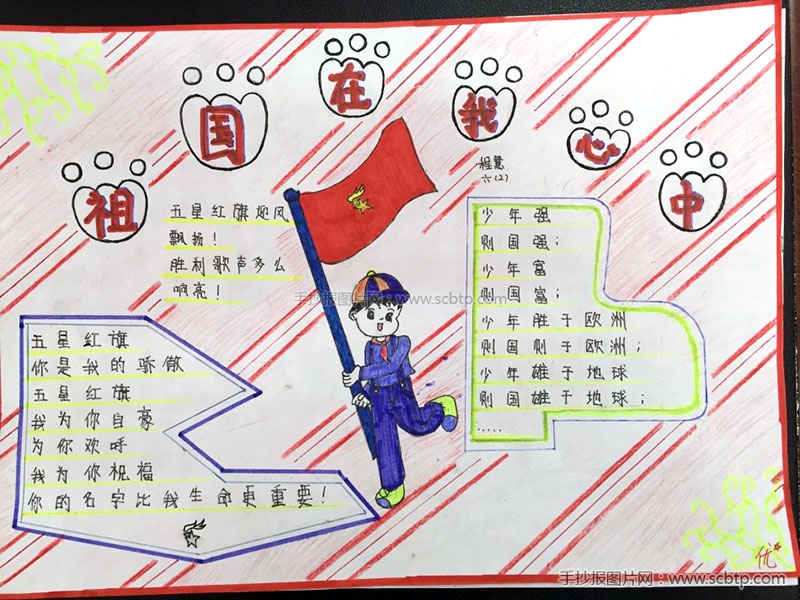 祖国在我心中
程慧
六(2)
五星红旗迎风
飘扬！
胜利歌声多么
响亮！
少年强
则国强；
少年富
则国富；
少年胜于欧洲
则国则于欧洲；
少年雄于地球
则国雄于地球；
.....
手抄报图片网:www.scbtp.com
五星红旗
你是我的骄傲
五星红旗
我为你自豪
为你欢呼
我为你祝福
你的名字比我生命更重要！
优
手抄报图片网:www.scbtp.com